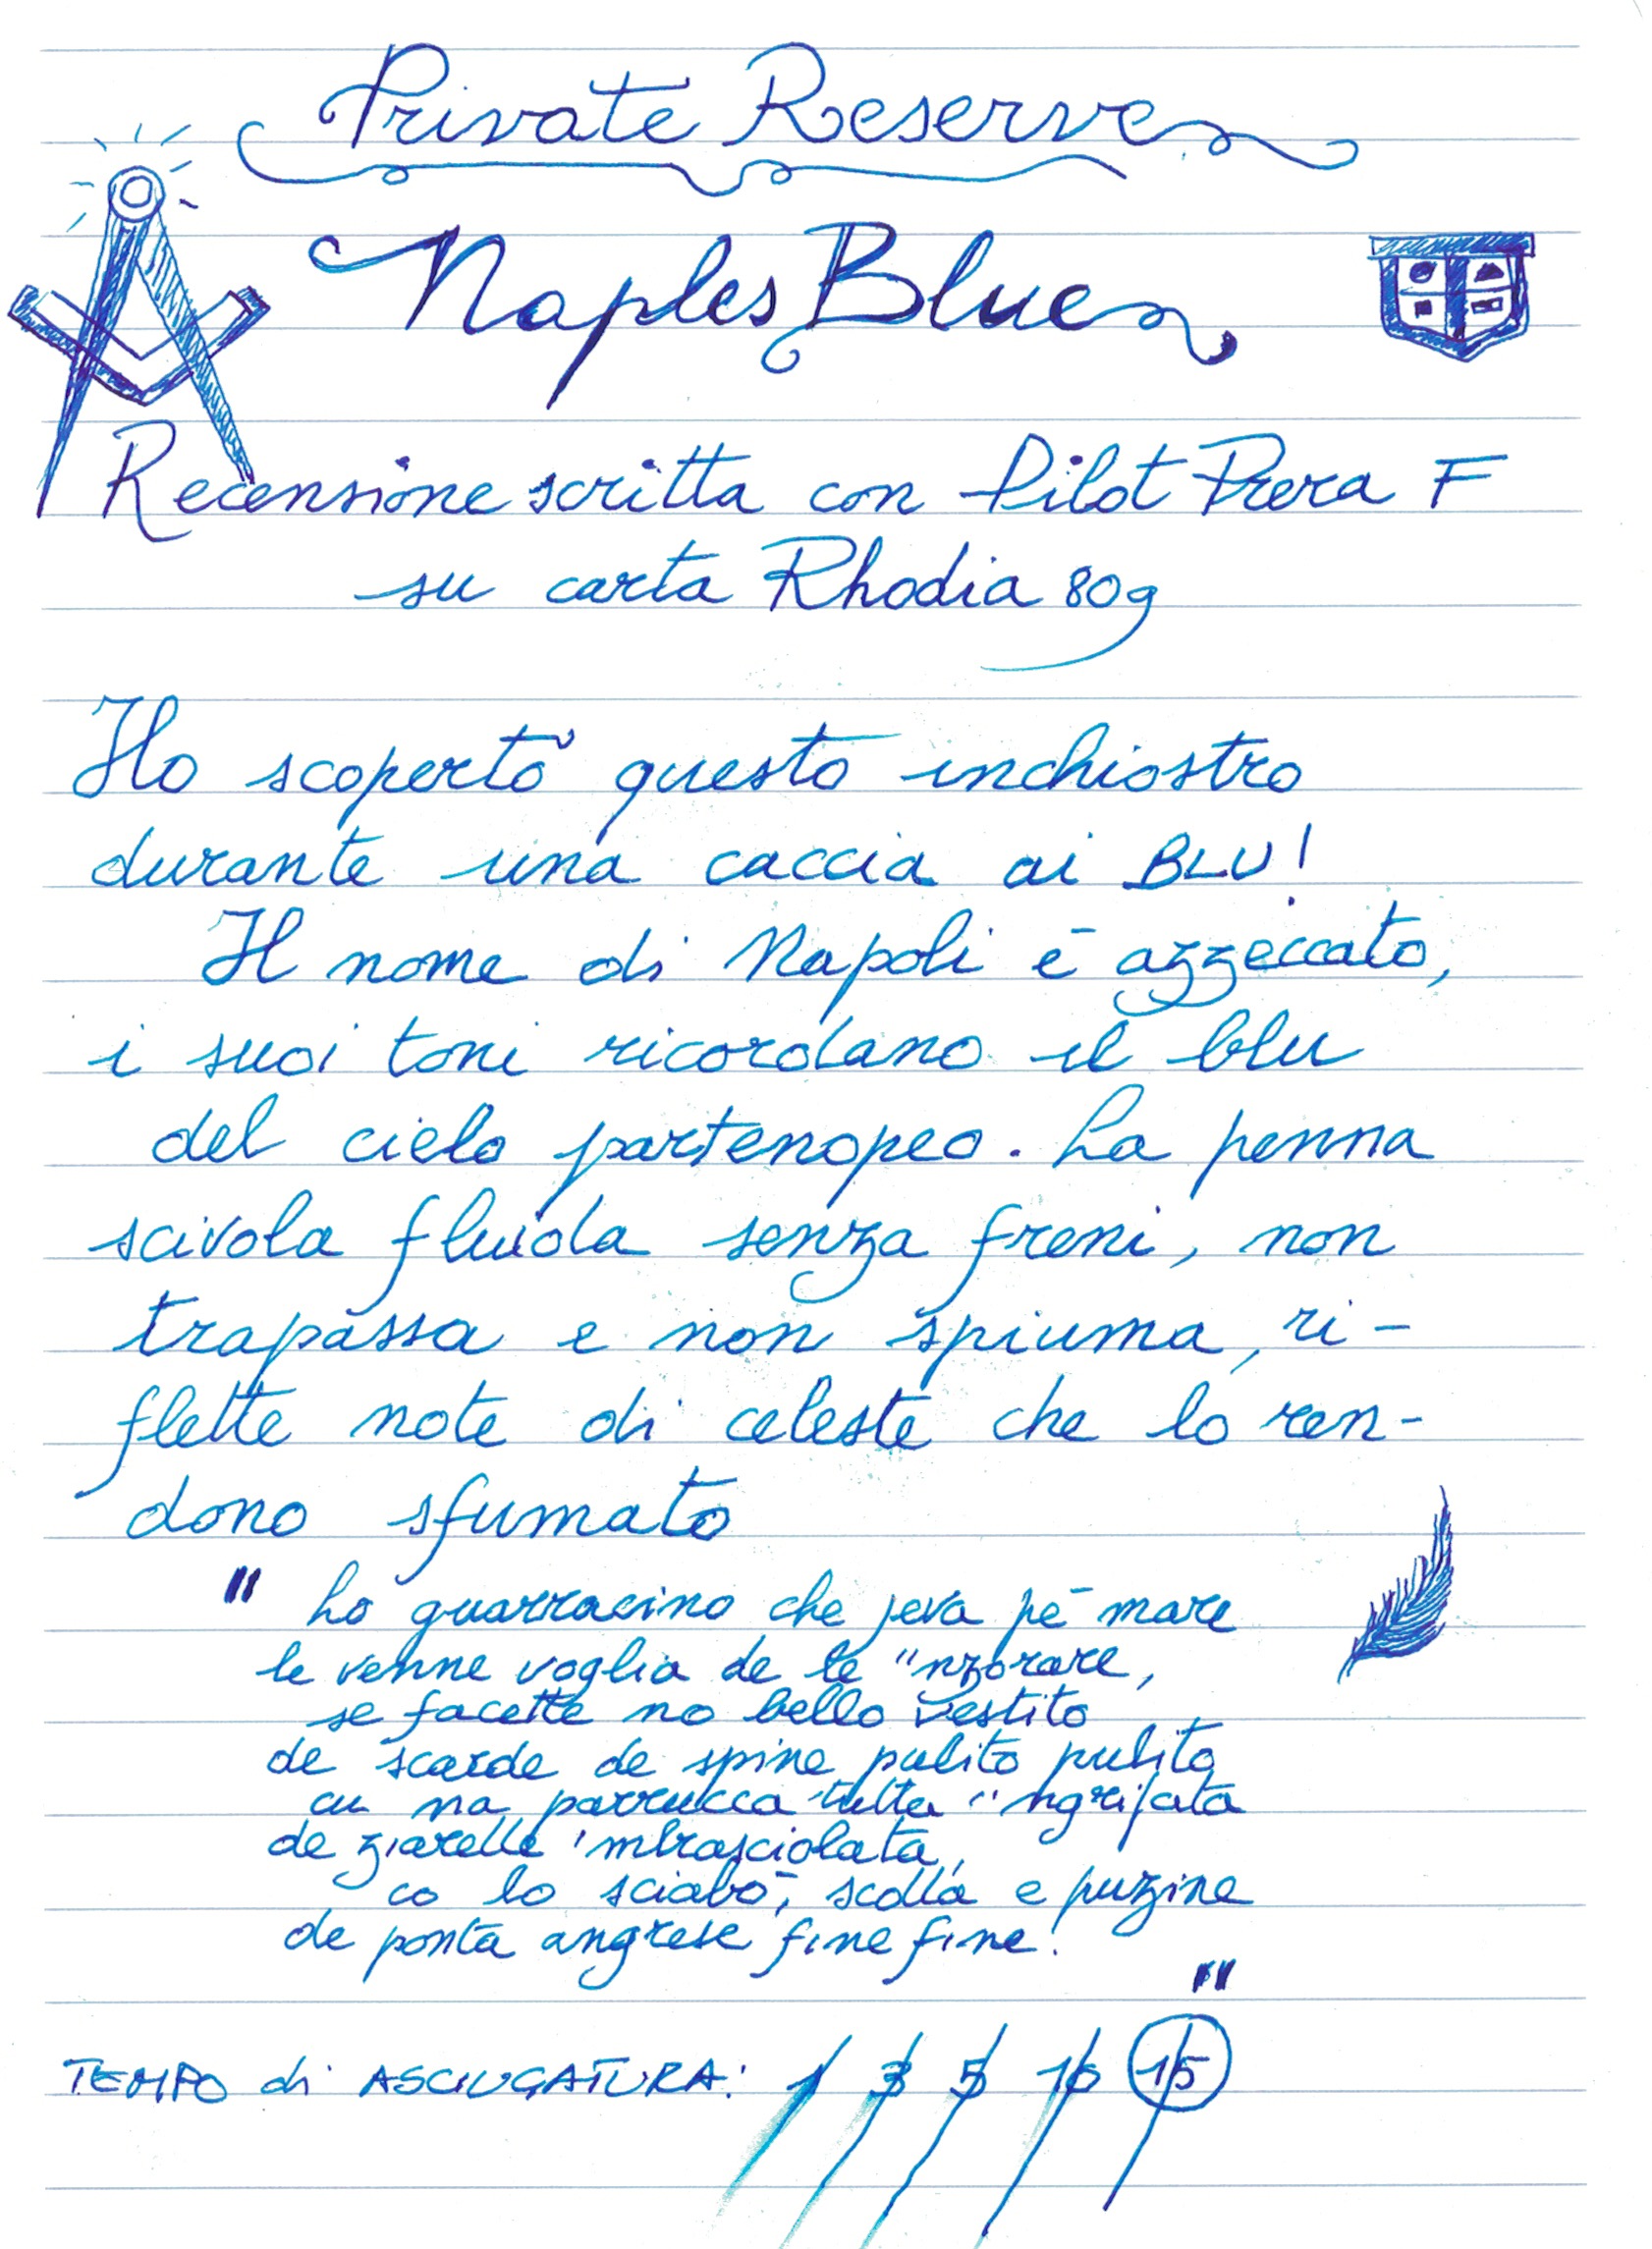 Private Reserve
Naples Blue
Recensione scritta con Pilot Prera F
su carta Rhodia 80g
Ho scoperto questo inchiostro
durante una caccia ai BLU!
Il nome di Napoli è azzeccato,
i suoi toni ricordano il blu
del cielo partenopeo. La penna
scivola fluida senza freni, non
trapassa e non spiuma, ri-
flette note di celeste che lo ren-
dono sfumato
" Lo guarracino che jeva pè mare
le venne voglia de se "nzorare,
se facette no bello vestito
de scarde de spine pulito pulito
cu na parrucca tutta "ngrifata
de ziarelle 'mbrasciolata,
co lo sciabò, scolla e puzine
de ponta angrese fine fine!
"
TEMPO di ASCIUGATURA: 1 3 5 10 15